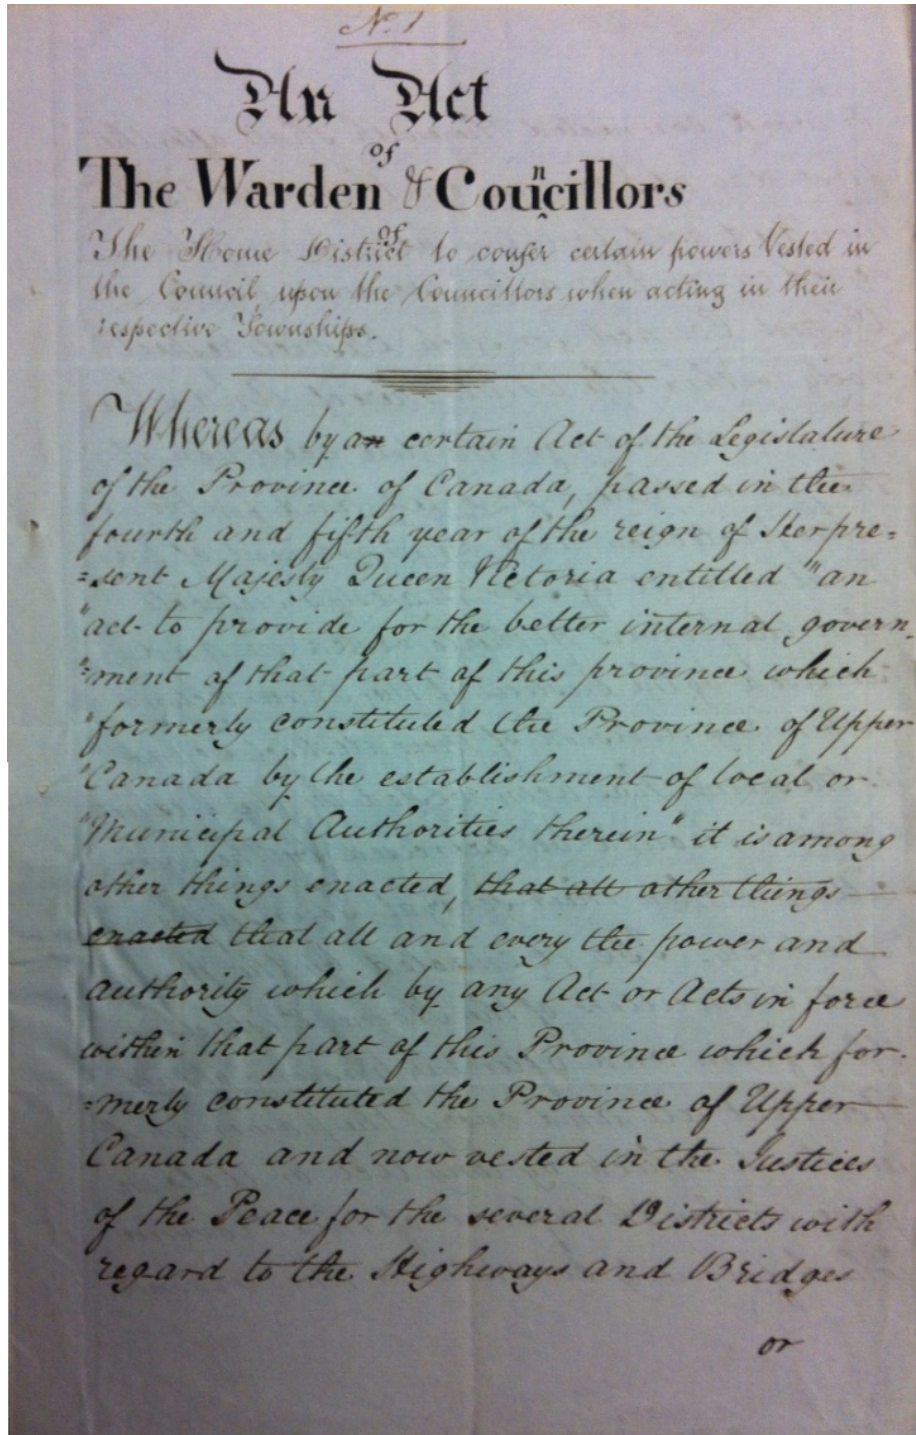 No. 1
An Act
of
The Warden & Councillors
of
The Home District to confer certain powers Vested in
the Council upon the Councillors when acting in their
respective Townships.
Whereas by an certain Act of the Legislature
of the Province of Canada, passed in the
fourth and fifth year of the reign of Her pre=
=sent Majesty Queen Victoria entitled "an
"act to provide for the better internal govern-
"=ment of that part of this province which
"formerly constituted the Province of Upper
"Canada by the establishment of local or
"Municipal Authorities therein" it is among
other things enacted, that all other things
enacted that all and every the power and
authority which by any Act or Acts in force
within that part of this Province which for-
=merly constituted the Province of Upper
Canada and now vested in the Justices
of the Peace for the several Districts with
regard to the Highways and Bridges
or